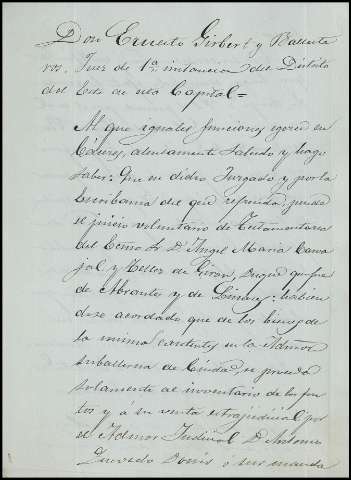 Don Ernesto Gisbert y Balleste
ros, Juez de 1ª instancia del Distrito
del Este de esta Capital =
Al que iguales funciones egerce en
Cáceres, atentamente saludo y hago
saber: Que en dicho Juzgado y por la
Escribanía del que refrenda, pende
el juicio voluntario de Testamentaria
del Ecmo Sr D. Angel María Carva
jal y Tellez de Giron, Duque que fue
de Abrantes y de Linares: habien
dose acordado que de los bienes de
la misma ecsistentes en la Admon
subalterna de se proceda
solamente al inventario de los fru
tos y á su venta estrajudicial por
el Admor Judicial D. Antonio
Quevedo Donis ó sus manda